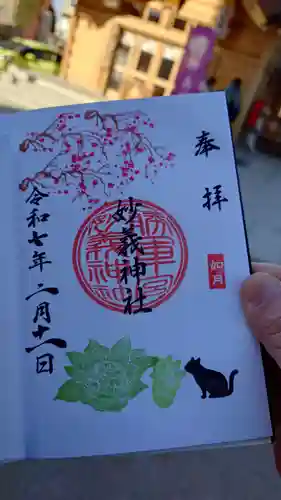 奉拝
如月
妙義神社
令和七年二月十一日